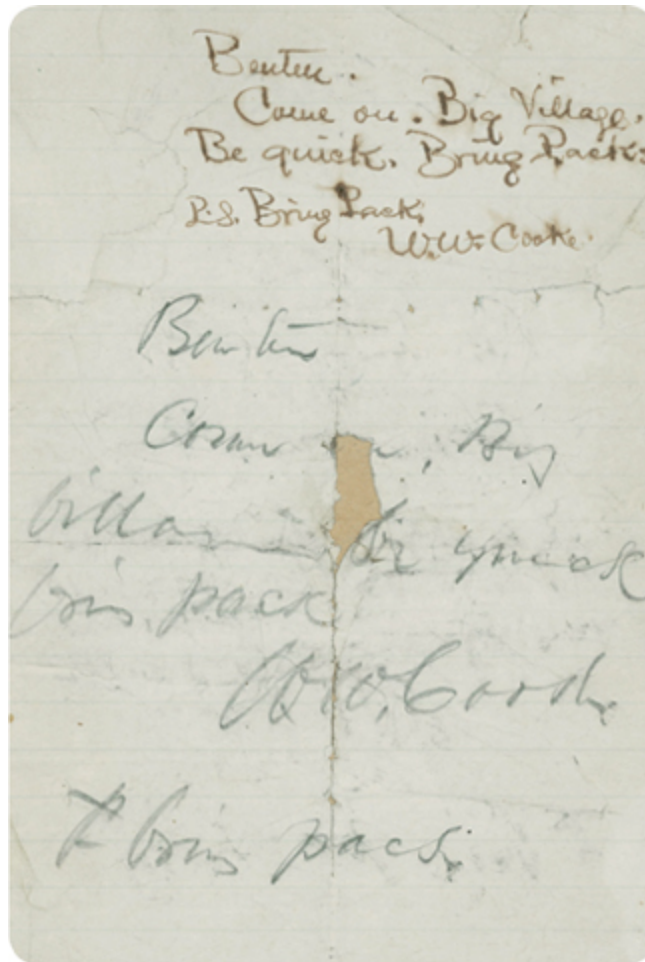 Benteen.
Come on. Big Village.
Be quick. Bring Packs
P.S. Bring Packs
W.W. Cooke.
Benteen
Come on, Big
Village be quick
bring packs
W.W. Cooke
P bring pacs.